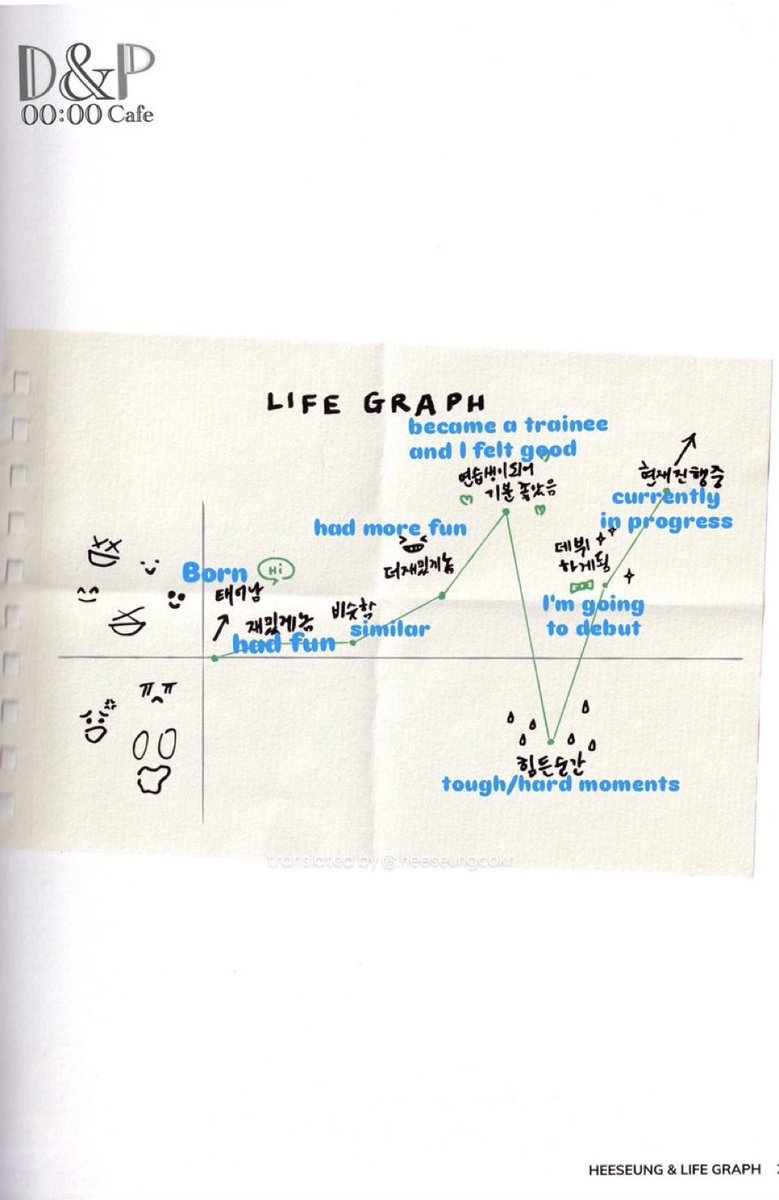 D&P
00:00 Cafe
LIFE GRAPH
became a trainee
and I felt good
연습생이 되어
기분 좋았음
현재 진행중
currently
in progress
had more fun
더 재밌게 놈
데뷔
하게됨
Born
Hi
태어남
I'm going
to debut
재밌게 놈
비슷함
similar
had fun
ㅠ ㅠ
힘든 순간
tough/hard moments
translated by @heeseungcokr
HEESEUNG & LIFE GRAPH